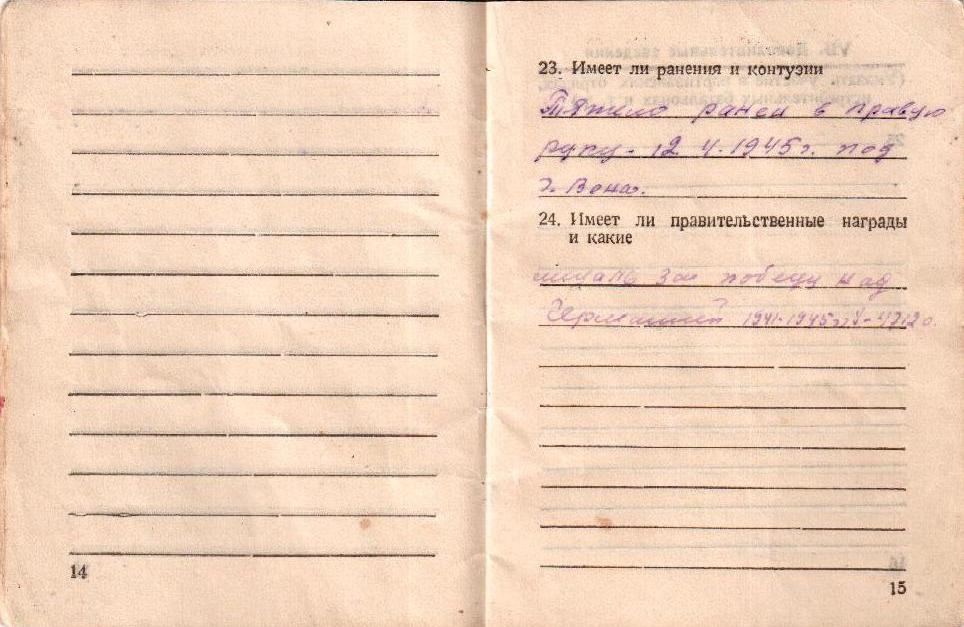 14
23. Имеет ли ранения и контузии
Тяжело ранен в правую
руку - 12.4.1945г. под
г. Вена.
24. Имеет ли правительственные награды
и какие
медаль за победу над
Германией 1941-1945г.
15